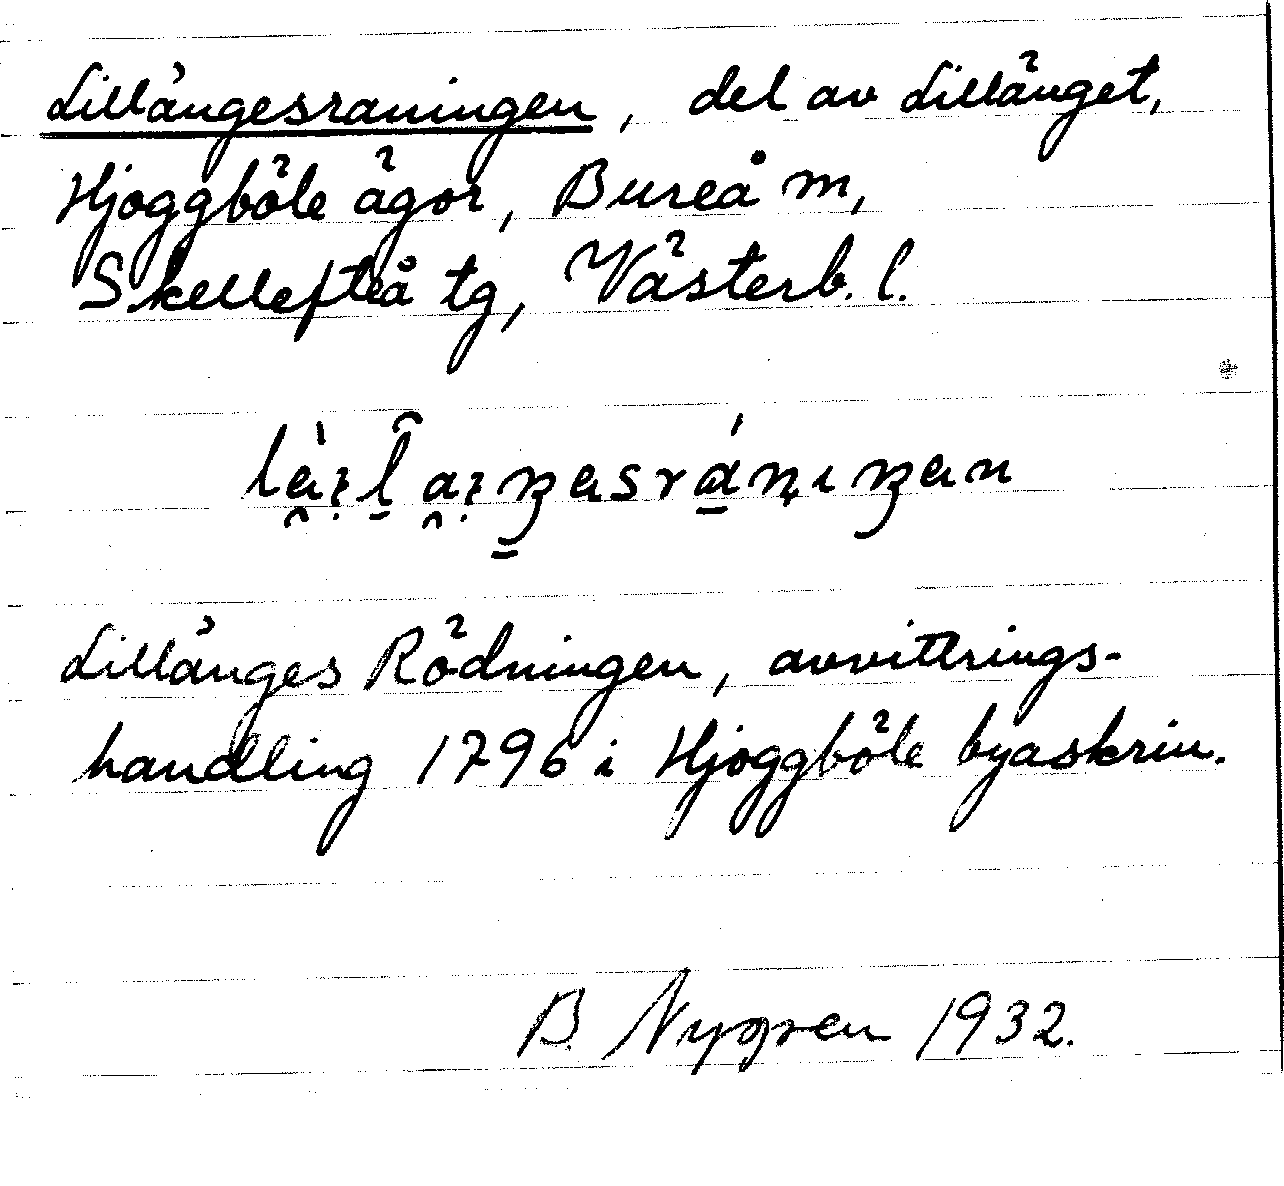 Lillängesraningen, del av Lillänget,
Hjoggböle ägor, Bureå m,
Skellefteå tg, Västerb. l.
Lillänges Rödningen, avvittrings-
handling 1796 i Hjoggböle byaskrin.
B. Nygren 1932.